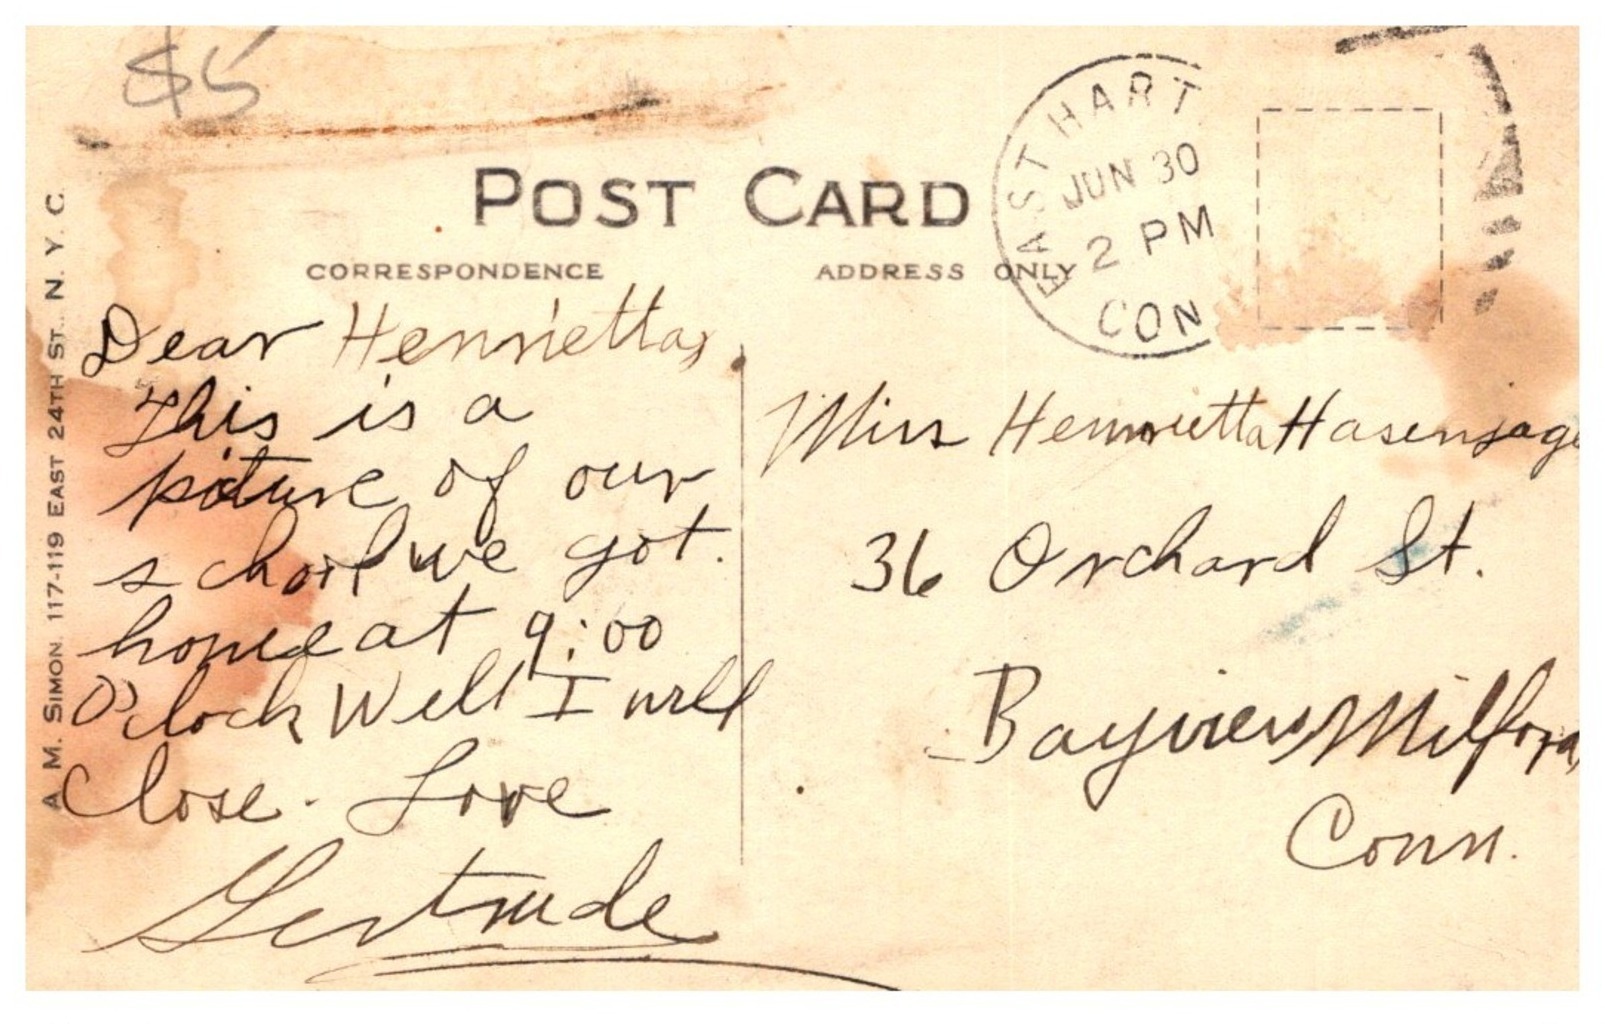 $5
POST CARD
CORRESPONDENCE
ADDRESS ONLY
EAST HART
JUN 30
2 PM
CON
A. M. SIMON. 117-119 EAST 24TH ST., N. Y. C.
Dear Henrietta,
This is a
picture of our
school we got.
home at 9:00
O'clock Well I will
Close. Love
Gertrude
Miss Henrietta Hasenjage
36 Orchard St.
Bayview, Milford,
Conn.